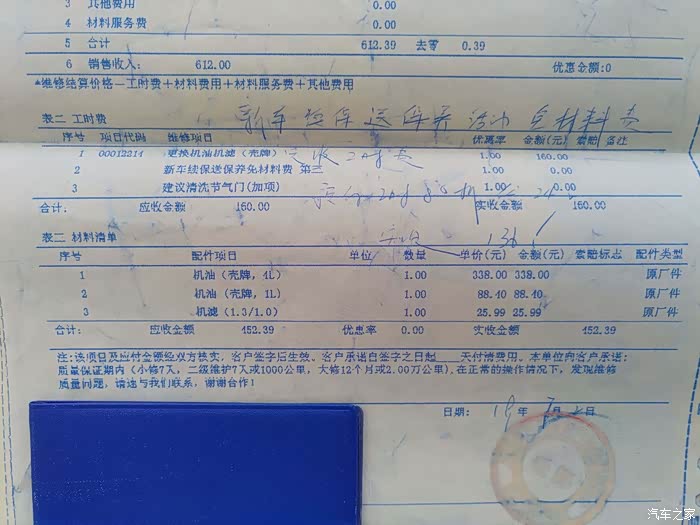 3 其他费用 0.00
4 材料服务费 0.00
5 合计 612.39 去零 0.39
6 销售收入: 612.00 优惠金额:0
*维修结算价格—工时费+材料费用+材料服务费+其他费用
新车 保 送保养活动 免材料费
表二 工时费
序号 项目代码 维修项目 优惠率 金额(元) 索赔 备注
1 00012214 更换机油机滤(壳牌) 1.00 160.00
2 新车续保送保养免材料费 第三 1.00 0.00
3 建议清洗节气门(加项) 1.00 0.00
合计: 应收金额 160.00 实收金额 160.00
136
表二 材料清单
序号 配件项目 单位 数量 单价(元) 金额(元) 索赔标志 配件类型
1 机油(壳牌,4L) 1.00 338.00 338.00 原厂件
2 机油(壳牌,1L) 1.00 88.40 88.40 原厂件
3 机滤(1.3/1.0) 1.00 25.99 25.99 原厂件
合计: 应收金额 452.39 优惠率 0.00 实收金额 452.39
注:该项目及应付金额经双方核实, 客户签字后生效。客户承诺自签字之日起____天付清费用。本单位向客户承诺:
质量保证期内(小修7天, 二级维护7天或1000公里, 大修12个月或2.00万公里),在正常的操作情况下, 发现维修
质量问题, 请速与我们联系, 谢谢合作!
日期: 19 年 月 2 日
汽车之家